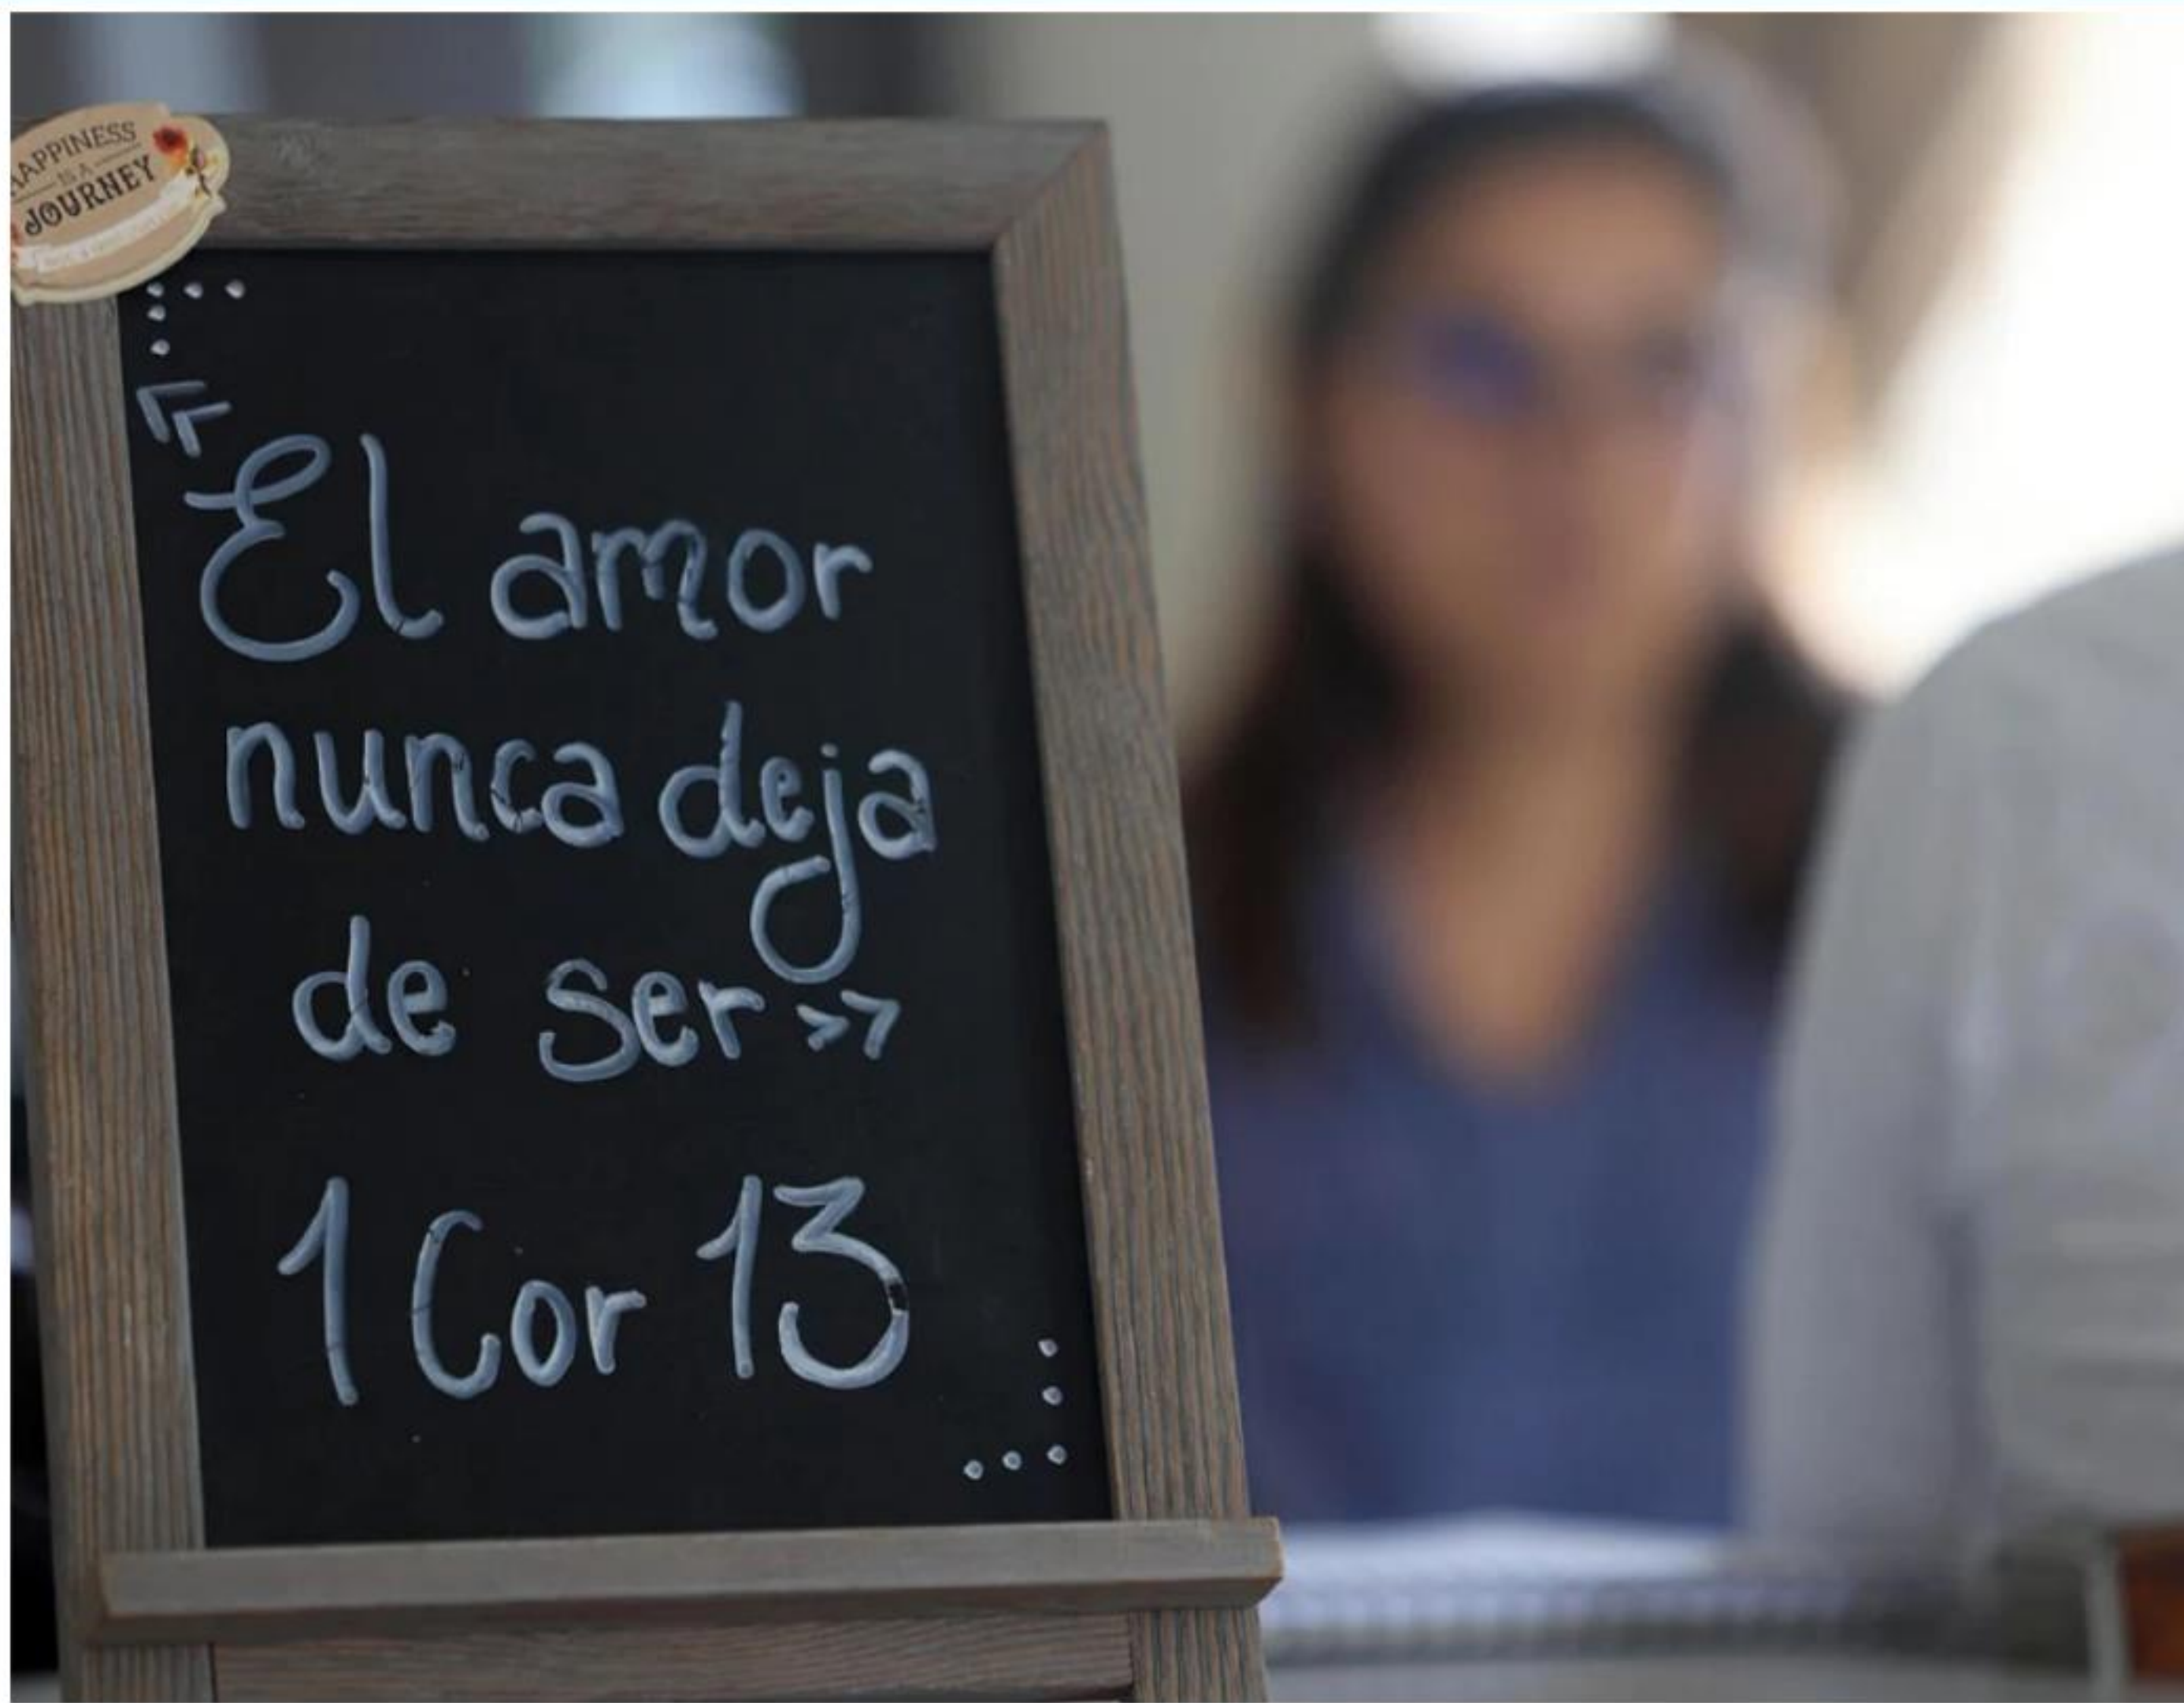 HAPPINESS
IS A
JOURNEY
«El amor
nunca deja
de ser»
1 Cor 13